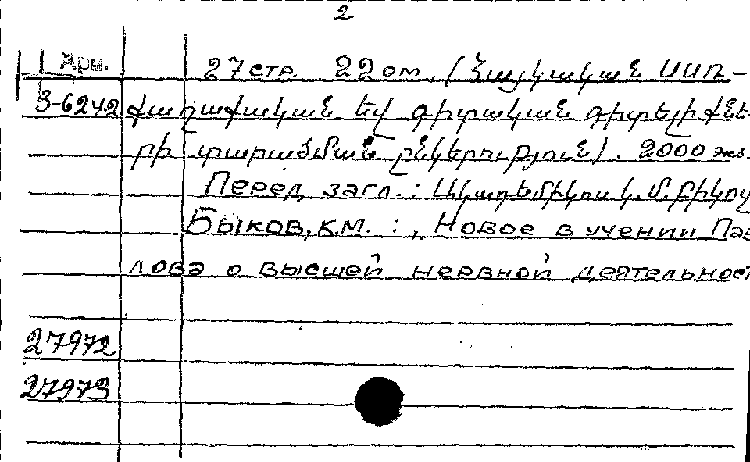 2
Арм. 27 стр. 22 см. (Հայկական ՍՍՌ-
3-6242 քաղաքական եվ գիտական գիտելիքնե-
րի տարածման ընկերություն). 2000 экз.
Перед загл.: Ակադեմիկոս Կ. Մ. Բիկով
Быков, К.М.:, Новое в учении Пав-
лова о высшей нервной деятельност
27972
27973